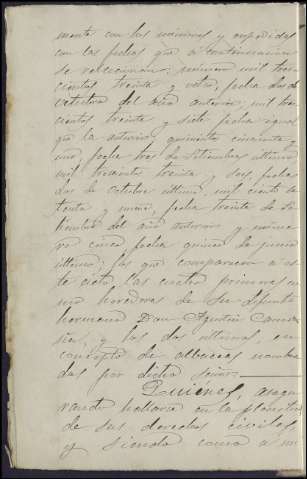 mente con los números y expedidas
con las fechas que á continuacion
se relacionan: número mil tres
cientos treinta y ocho, fecha dos de
Octubre del año anterior; mil tres
cientos treinta y siete fecha igual
que la anterior; quinientos cincuenta y
uno, fecha tres de Setiembre último
mil trescientos treinta y seis, fecha
dos de Octubre último; mil ciento se
tenta y nueve, fecha treinta de Se
tiembre del año anterior y núme
ro cinco fecha quince de Junio
último; los que comparecen á es
te acto, las cuatro primeras co
mo herederas de su difunto
hermano Don Agustin
y los dos últimos, en
concepto de albaceas nombra
dos por dicho señor.
Quiénes, asegu
rando hallarse en la plenitud
de sus derechos civiles,
y siendo como á mi